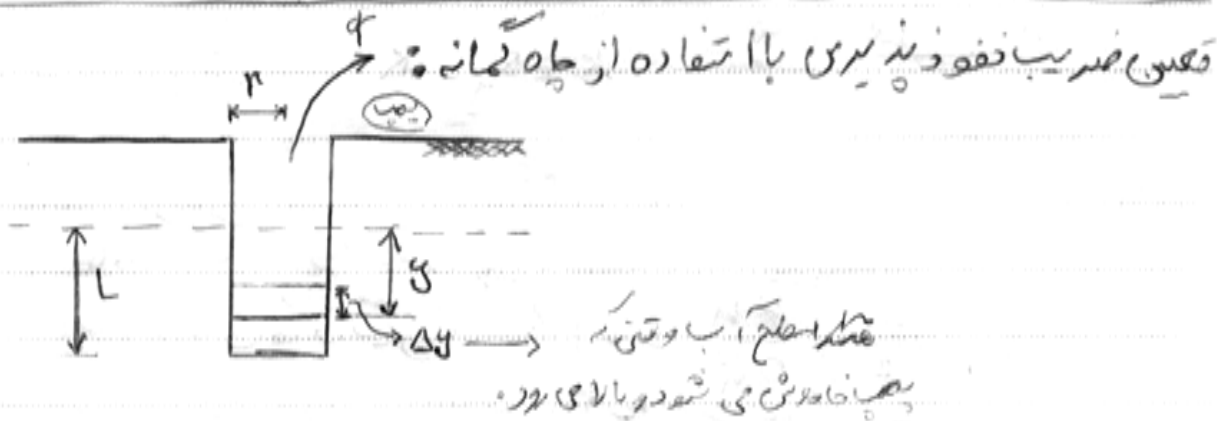 تعیین ضریب نفوذپذیری با استفاده از چاه گمانه:
q
r
پمپ
L
y
Δy →
مقدار سطح آب وقتی که
پمپ خاموش می شود و بالا می رود.